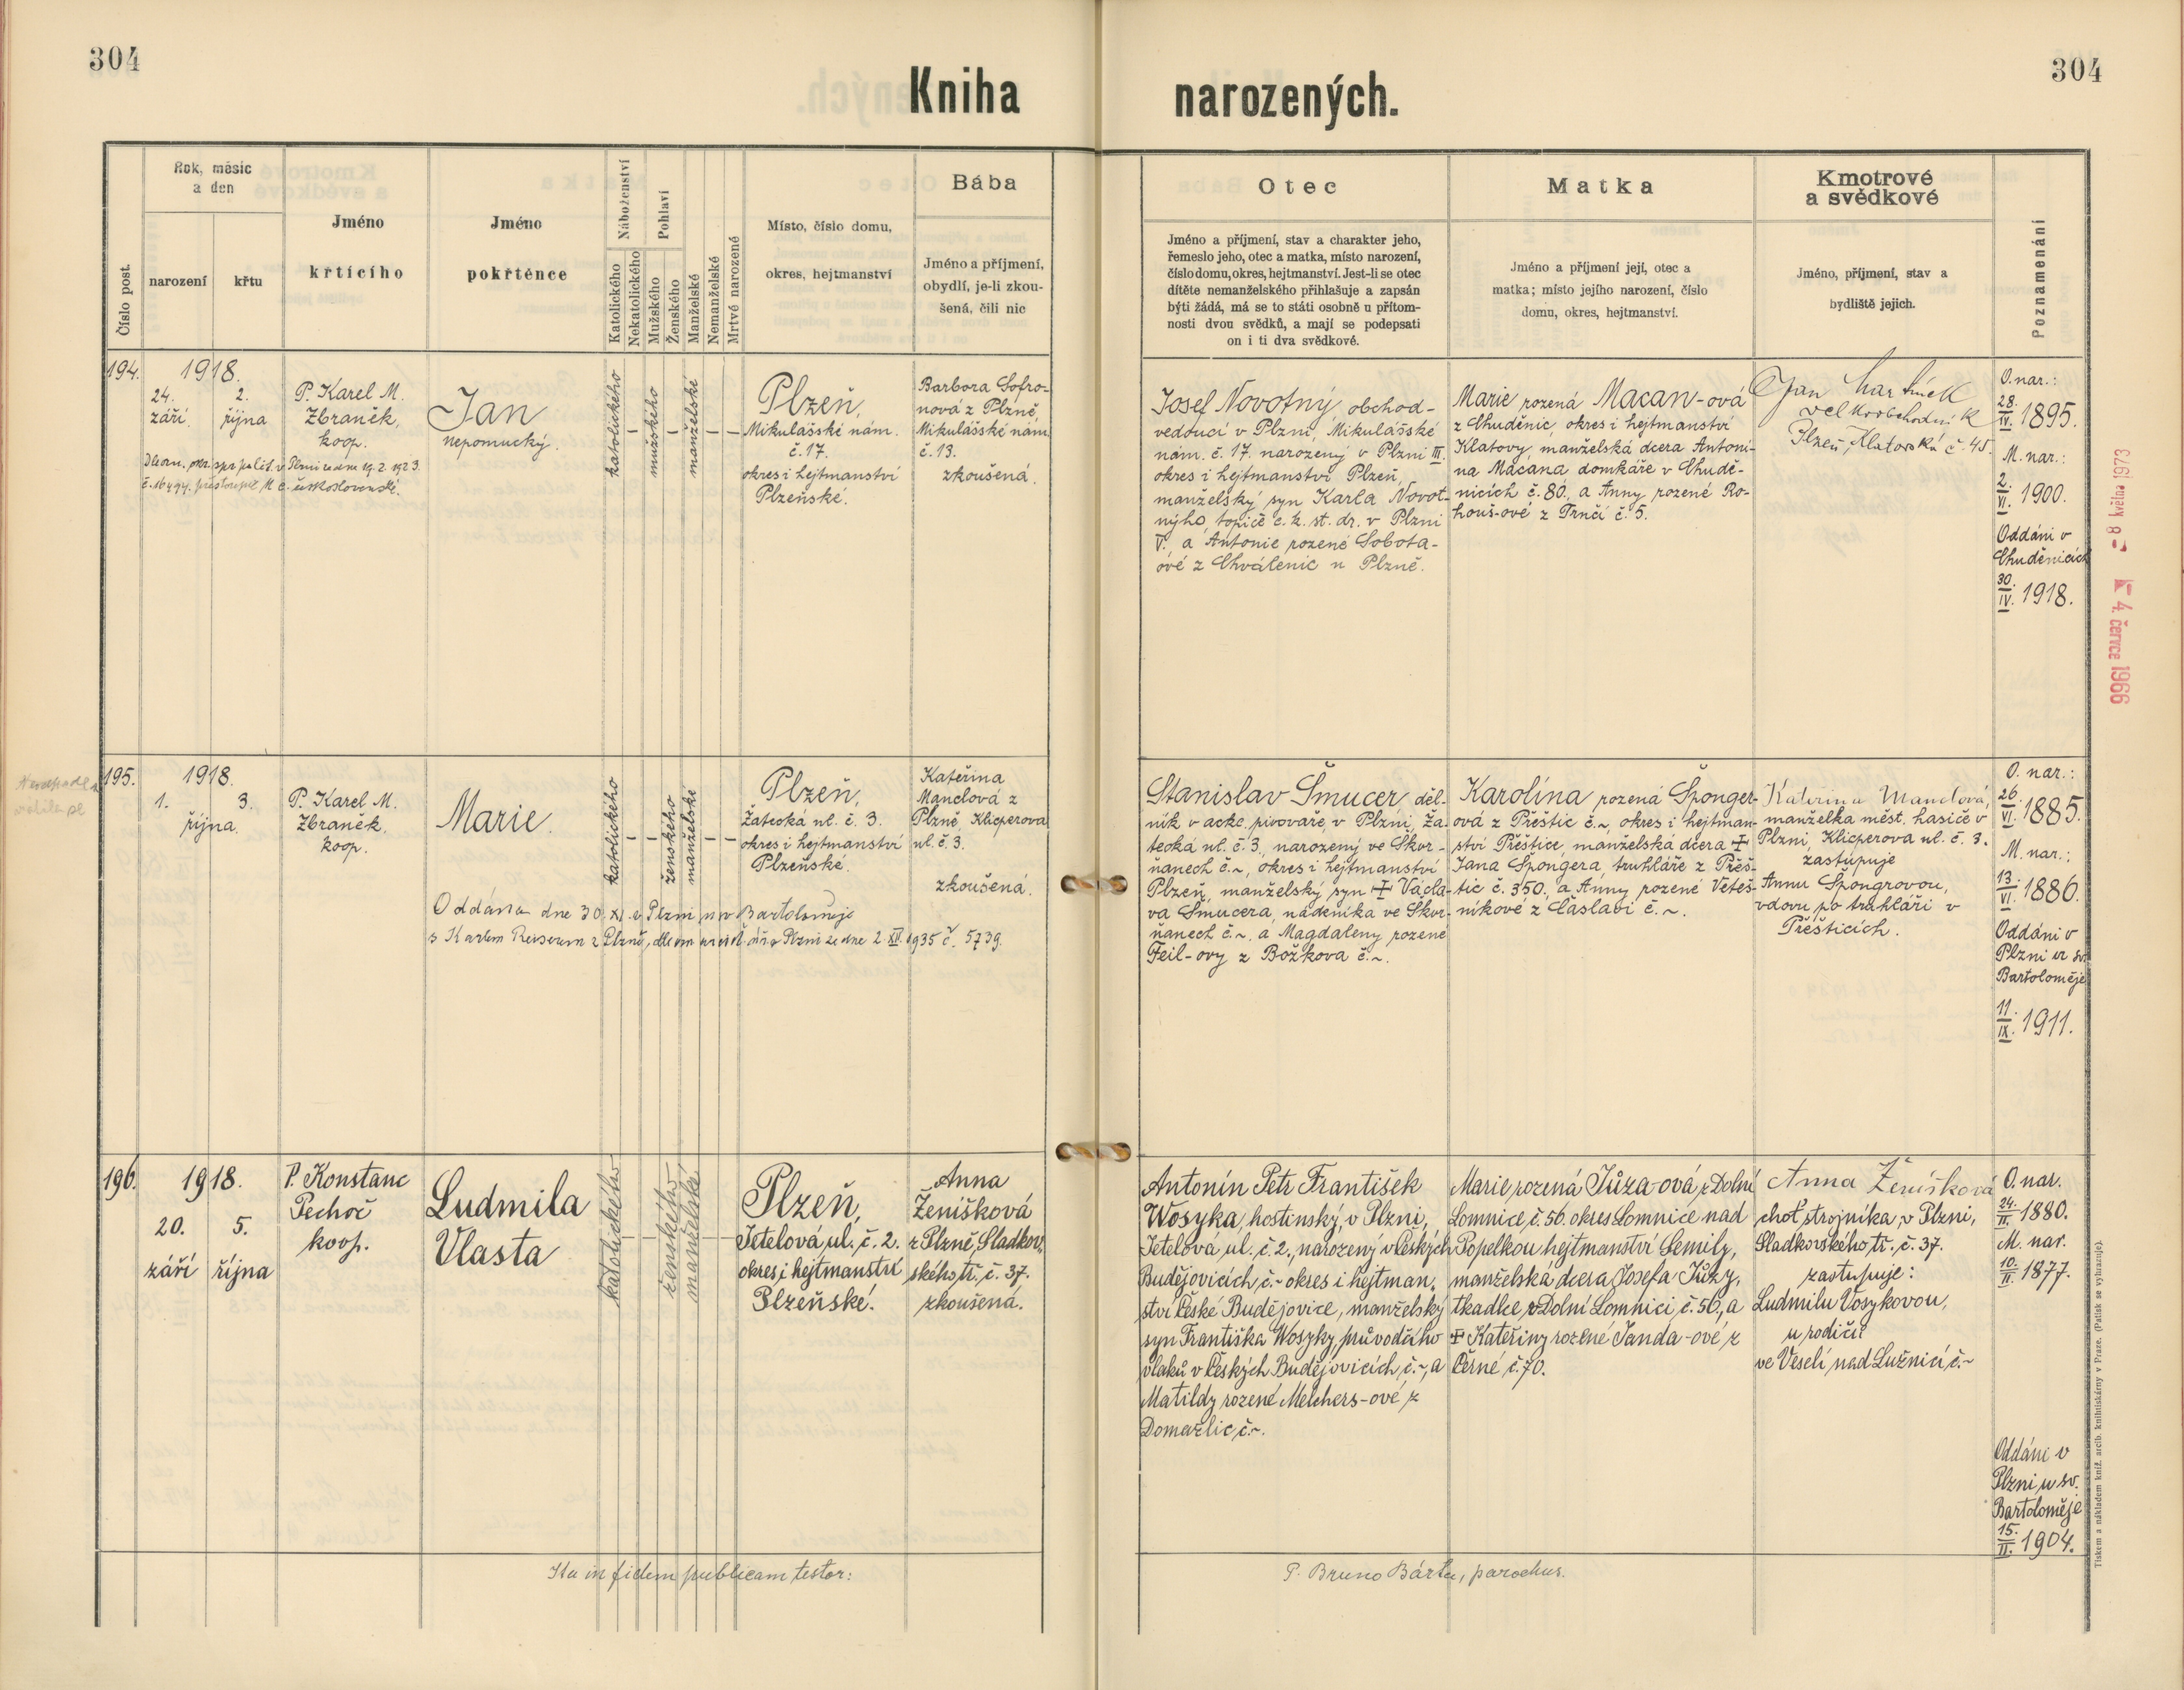 304
304
Kniha narozených.
Číslo post.
Rok, měsíc
a den
narození
křtu
Jméno
křtícího
Jméno
pokřtěnce
Náboženství
Katolického
Nekatolického
Pohlaví
Mužského
Ženského
Manželské
Nemanželské
Mrtvě narozené
Místo, číslo domu,
okres, hejtmanství
Bába
Jméno a příjmení,
obydlí, je-li zkou-
šená, čili nic
Otec
Jméno a příjmení, stav a charakter jeho,
řemeslo jeho, otec a matka, místo narození,
číslo domu, okres, hejtmanství. Jest-li se otec
dítěte nemanželského přihlašuje a zapsán
býti žádá, má se to státi osobně u přítom-
nosti dvou svědků, a mají se podepsati
on i ti dva svědkové.
Matka
Jméno a příjmení její, otec a
matka; místo jejího narození, číslo
domu, okres, hejtmanství.
Kmotrové
a svědkové
Jméno, příjmení, stav a
bydliště jejich.
Poznamenání
194.
1918.
24.
září
2.
října
P. Karel M.
Zbraněk,
koop.
Jan
Nepomucký.
katolického
mužského
manželské
Plzeň,
Mikulášské nám.
č. 17.
okres i hejtmanství
Plzeňské.
Barbora Sofro-
nová z Plzně,
Mikulášské nám.
č. 13.
zkoušená.
Josef Novotný, obchod-
vedoucí v Plzni, Mikulášské
nám. č. 17. narozený v Plzni III.
okres i hejtmanství Plzeň,
manželský syn Karla Novot-
nýho, topiče c. k. st. dr. v Plzni
V. a Antonie rozené Sobota-
ové z Chválenic u Plzně.
Marie rozená Macan-ová
z Chuděnic, okres i hejtmanství
Klatovy, manželská dcera Antoní-
na Macana domkáře v Chudě-
nicích č. 80., a Anny rozené Ro-
houš-ové z Trnčí č. 5.
Jan
velkoobchodník
Plzeň, Klatovská č. 45.
O. nar.:
28.
IV. 1895.
M. nar.:
2.
VI. 1900.
Oddáni v
Chuděnicích
30.
IV. 1918.
ze dne 19. 2. 1923.
č. 16494.
- 8 května 1973
4. července 1966
195.
1918.
1.
3.
října.
P. Karel M.
Zbraněk,
koop.
Marie.
katolického
ženského
manželské
Plzeň,
Žatecká ul. č. 3.
okres i hejtmanství
Plzeňské.
Kateřina
Manclová z
Plzně, Klicperova
ul. č. 3.
zkoušená.
Oddána dne 30. XI. v Plzni u sv. Bartoloměje
2. XII. 1935 č. 5739.
Stanislav Šmucer, děl-
ník v akc. pivovaře, v Plzni, Ža-
tecká ul. č. 3, narozený ve Skvr-
ňanech č. ~, okres i hejtmanství
Plzeň, manželský syn + Václa-
va Šmucera, nádeníka ve Skvr-
ňanech č. ~. a Magdaleny rozené
Feil-ovy z Božkova č. ~.
Karolína rozená Šponger-
ová z Přeštic č. ~, okres i hejtman-
ství Přeštice, manželská dcera +
Jana Špongera, truhláře z Přeš-
tic č. 350, a Anny rozené Veteš-
níkové z Čáslavi č. ~.
Kateřina Manclová,
manželka měst. hasiče v
Plzni, Klicperova ul. č. 3.
zastupuje
Annu Špongrovou,
vdovu po truhláři v
Přešticích.
O. nar.:
26.
VI. 1885.
M. nar.:
13.
VI. 1886.
Oddáni v
Plzni u sv.
Bartoloměje
11.
IX. 1911.
196.
1918.
20.
září
5.
října
P. Konstanc
Pechoč
koop.
Ludmila
Vlasta
katolického
ženského
manželské
Plzeň,
Jetelová ul. č. 2.
okres i hejtmanství
Plzeňské.
Anna
Ženíšková
z Plzně, Sladkov-
ského tř. č. 37.
zkoušená.
Antonín Petr František
Wosyka, hostinský, v Plzni,
Jetelová ul. č. 2., narozený v Českých
Budějovicích č. ~ okres i hejtman-
ství České Budějovice, manželský
syn Františka Wosyky, průvodčího
vlaků v Českých Budějovicích, č. ~, a
Matildy rozené Melchers-ové z
Domažlic, č. ~.
Marie rozená Jůza-ová z Dolní
Lomnice, č. 56. okres Lomnice nad
Popelkou hejtmanství Semily,
manželská dcera Josefa Jůzy,
tkadlce z Dolní Lomnici č. 56, a
+ Kateřiny rozené Janda-ové z
Černé č. 70.
Anna Ženíšková
choť strojníka, v Plzni,
Sladkovského tř. č. 37.
zastupuje:
Ludmilu Vosykovou,
u rodičů
ve Veselí nad Lužnicí č. ~
O. nar.
24.
II. 1880.
M. nar.
10.
II. 1877.
Oddáni v
Plzni u sv.
Bartoloměje
15.
II. 1904.
Ita in fidem publicam testor:
P. Bruno Bárta, parochus.
Tiskem a nákladem kníž. arcib. knihtiskárny v Praze. (Patisk se vyhrazuje).